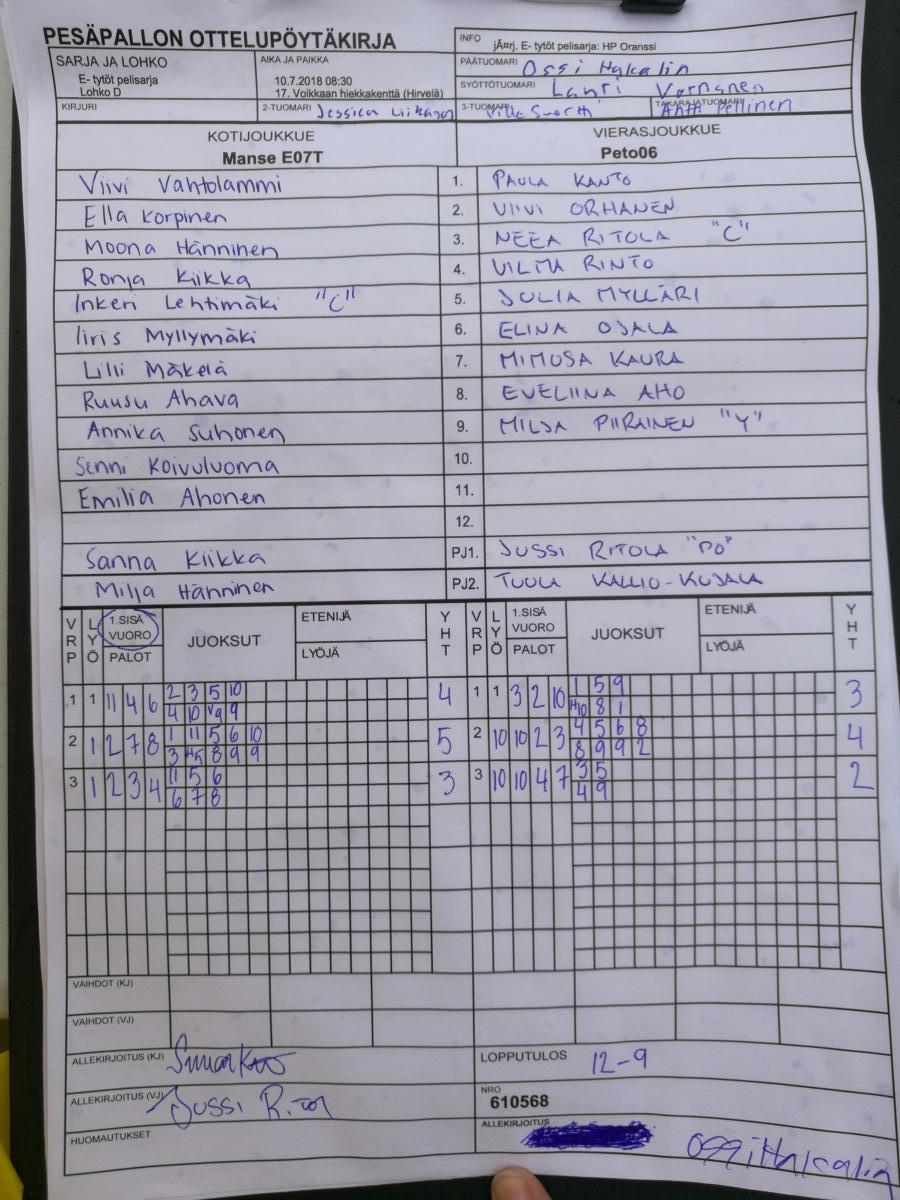 PESÄPALLON OTTELUPÖYTÄKIRJA
INFO jÃ¤rj. E- tytöt pelisarja: HP Oranssi
SARJA JA LOHKO
E- tytöt pelisarja
Lohko D
AIKA JA PAIKKA
10.7.2018 08:30
17. Voikkaan hiekkakenttä (Hirvelä)
PÄÄTUOMARI Ossi Hakalin
SYÖTTÖTUOMARI Lauri Varnanen
KIRJURI 2-TUOMARI Jessica Liikanen 3-TUOMARI Ville Suortti TAKARAJATUOMARI Antti Pellinen
KOTIJOUKKUE VIERASJOUKKUE
Manse E07T Peto06
Viivi Vahtolammi 1. PAULA KANTO
Ella Korpinen 2. VIIVI ORHANEN
Moona Hänninen 3. NEEA RITOLA "C"
Ronja Kiikka 4. VILMA RINTO
Inkeri Lehtimäki "C" 5. JULIA MYLLÄRI
Iiris Myllymäki 6. ELINA OJALA
Lilli Mäkelä 7. MIMOSA KAURA
Ruusu Ahava 8. EVELIINA AHO
Annika Suhonen 9. MILJA PIIRAINEN "Y"
Senni Koivuluoma 10.
Emilia Ahonen 11.
12.
Sanna Kiikka PJ1. JUSSI RITOLA "PO"
Milja Hänninen PJ2. TUULA KALLIO-KUJALA
VRP LYÖ 1.SISÄ VUORO PALOT JUOKSUT ETENIJÄ LYÖJÄ YHT VRP LYÖ 1.SISÄ VUORO PALOT JUOKSUT ETENIJÄ LYÖJÄ YHT
1 1 11 4 6 2 3 5 10 4 1 1 3 2 10 1 5 9 3
4 10 V9 9 H10 8 1
2 1 2 7 8 1 11 5 6 10 5 2 10 10 2 3 4 5 6 8 4
3 H5 8 9 9 8 9 9 2
3 1 2 3 4 11 5 6 3 3 10 10 4 7 3 5 2
6 7 8 4 9
VAIHDOT (KJ)
VAIHDOT (VJ)
ALLEKIRJOITUS (KJ) LOPPUTULOS 12-9
ALLEKIRJOITUS (VJ) Jussi NRO 610568
HUOMAUTUKSET ALLEKIRJOITUS Ossi Hakalin